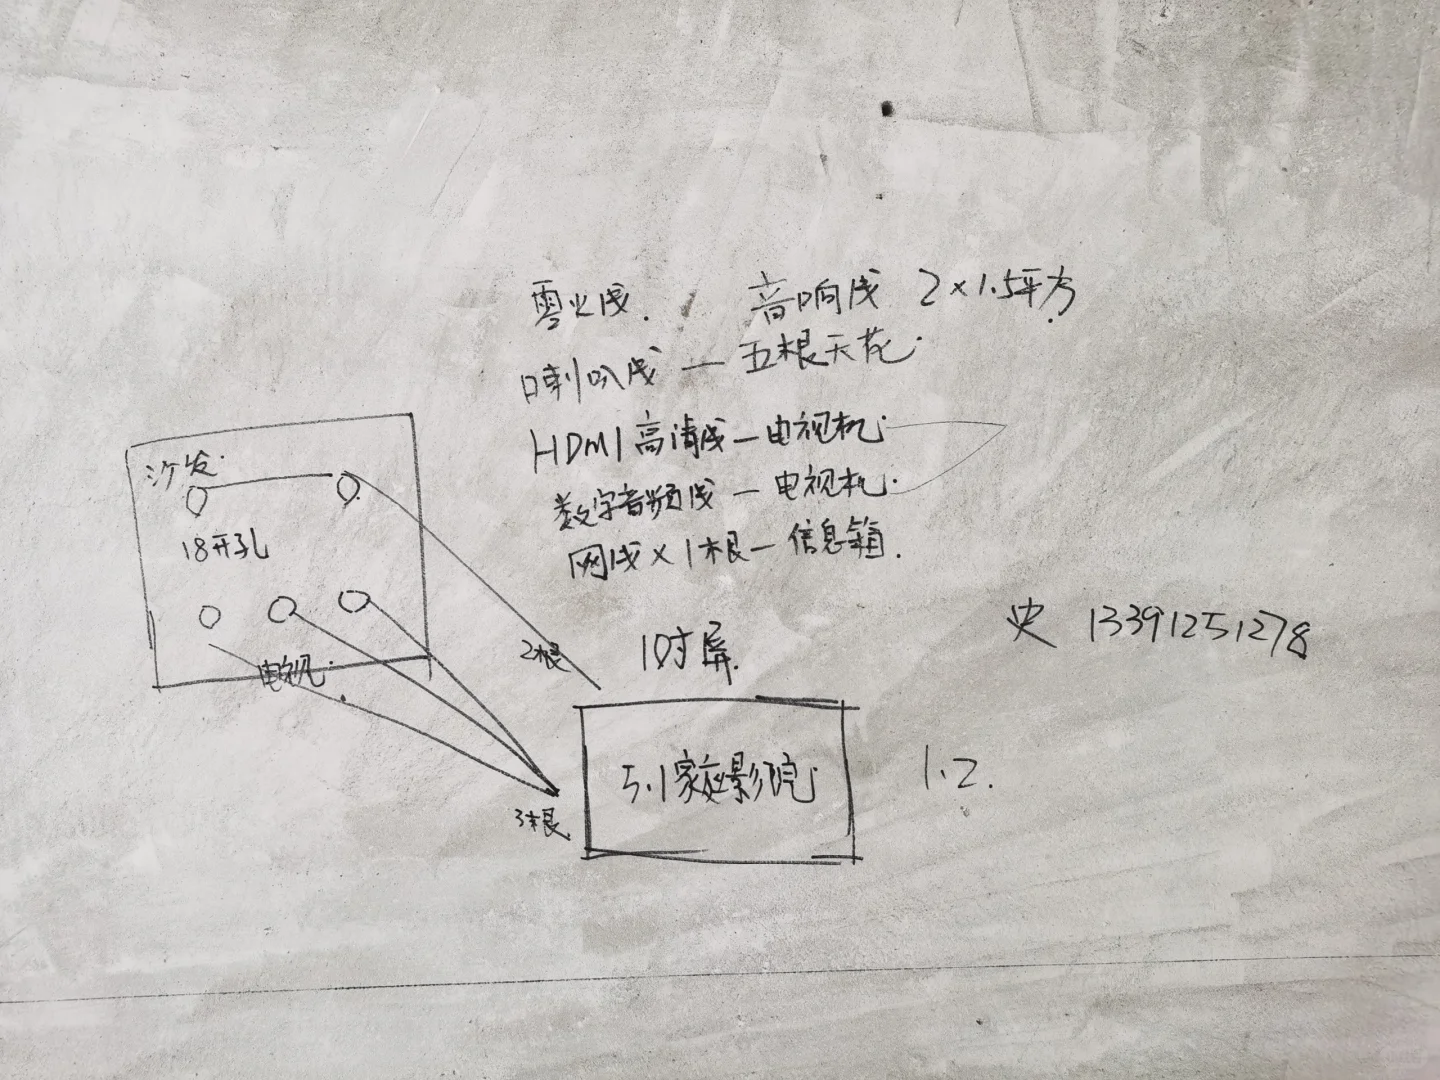 零火线.
音响线 2×1.5平方.
喇叭线 — 五根天花.
HDMI高清线 — 电视机.
数字音频线 — 电视机.
网线×1根 — 信息箱.
沙发.
18开孔
电视.
2根
3根.
10寸屏.
5.1家庭影院
1.2.
史 13391251278